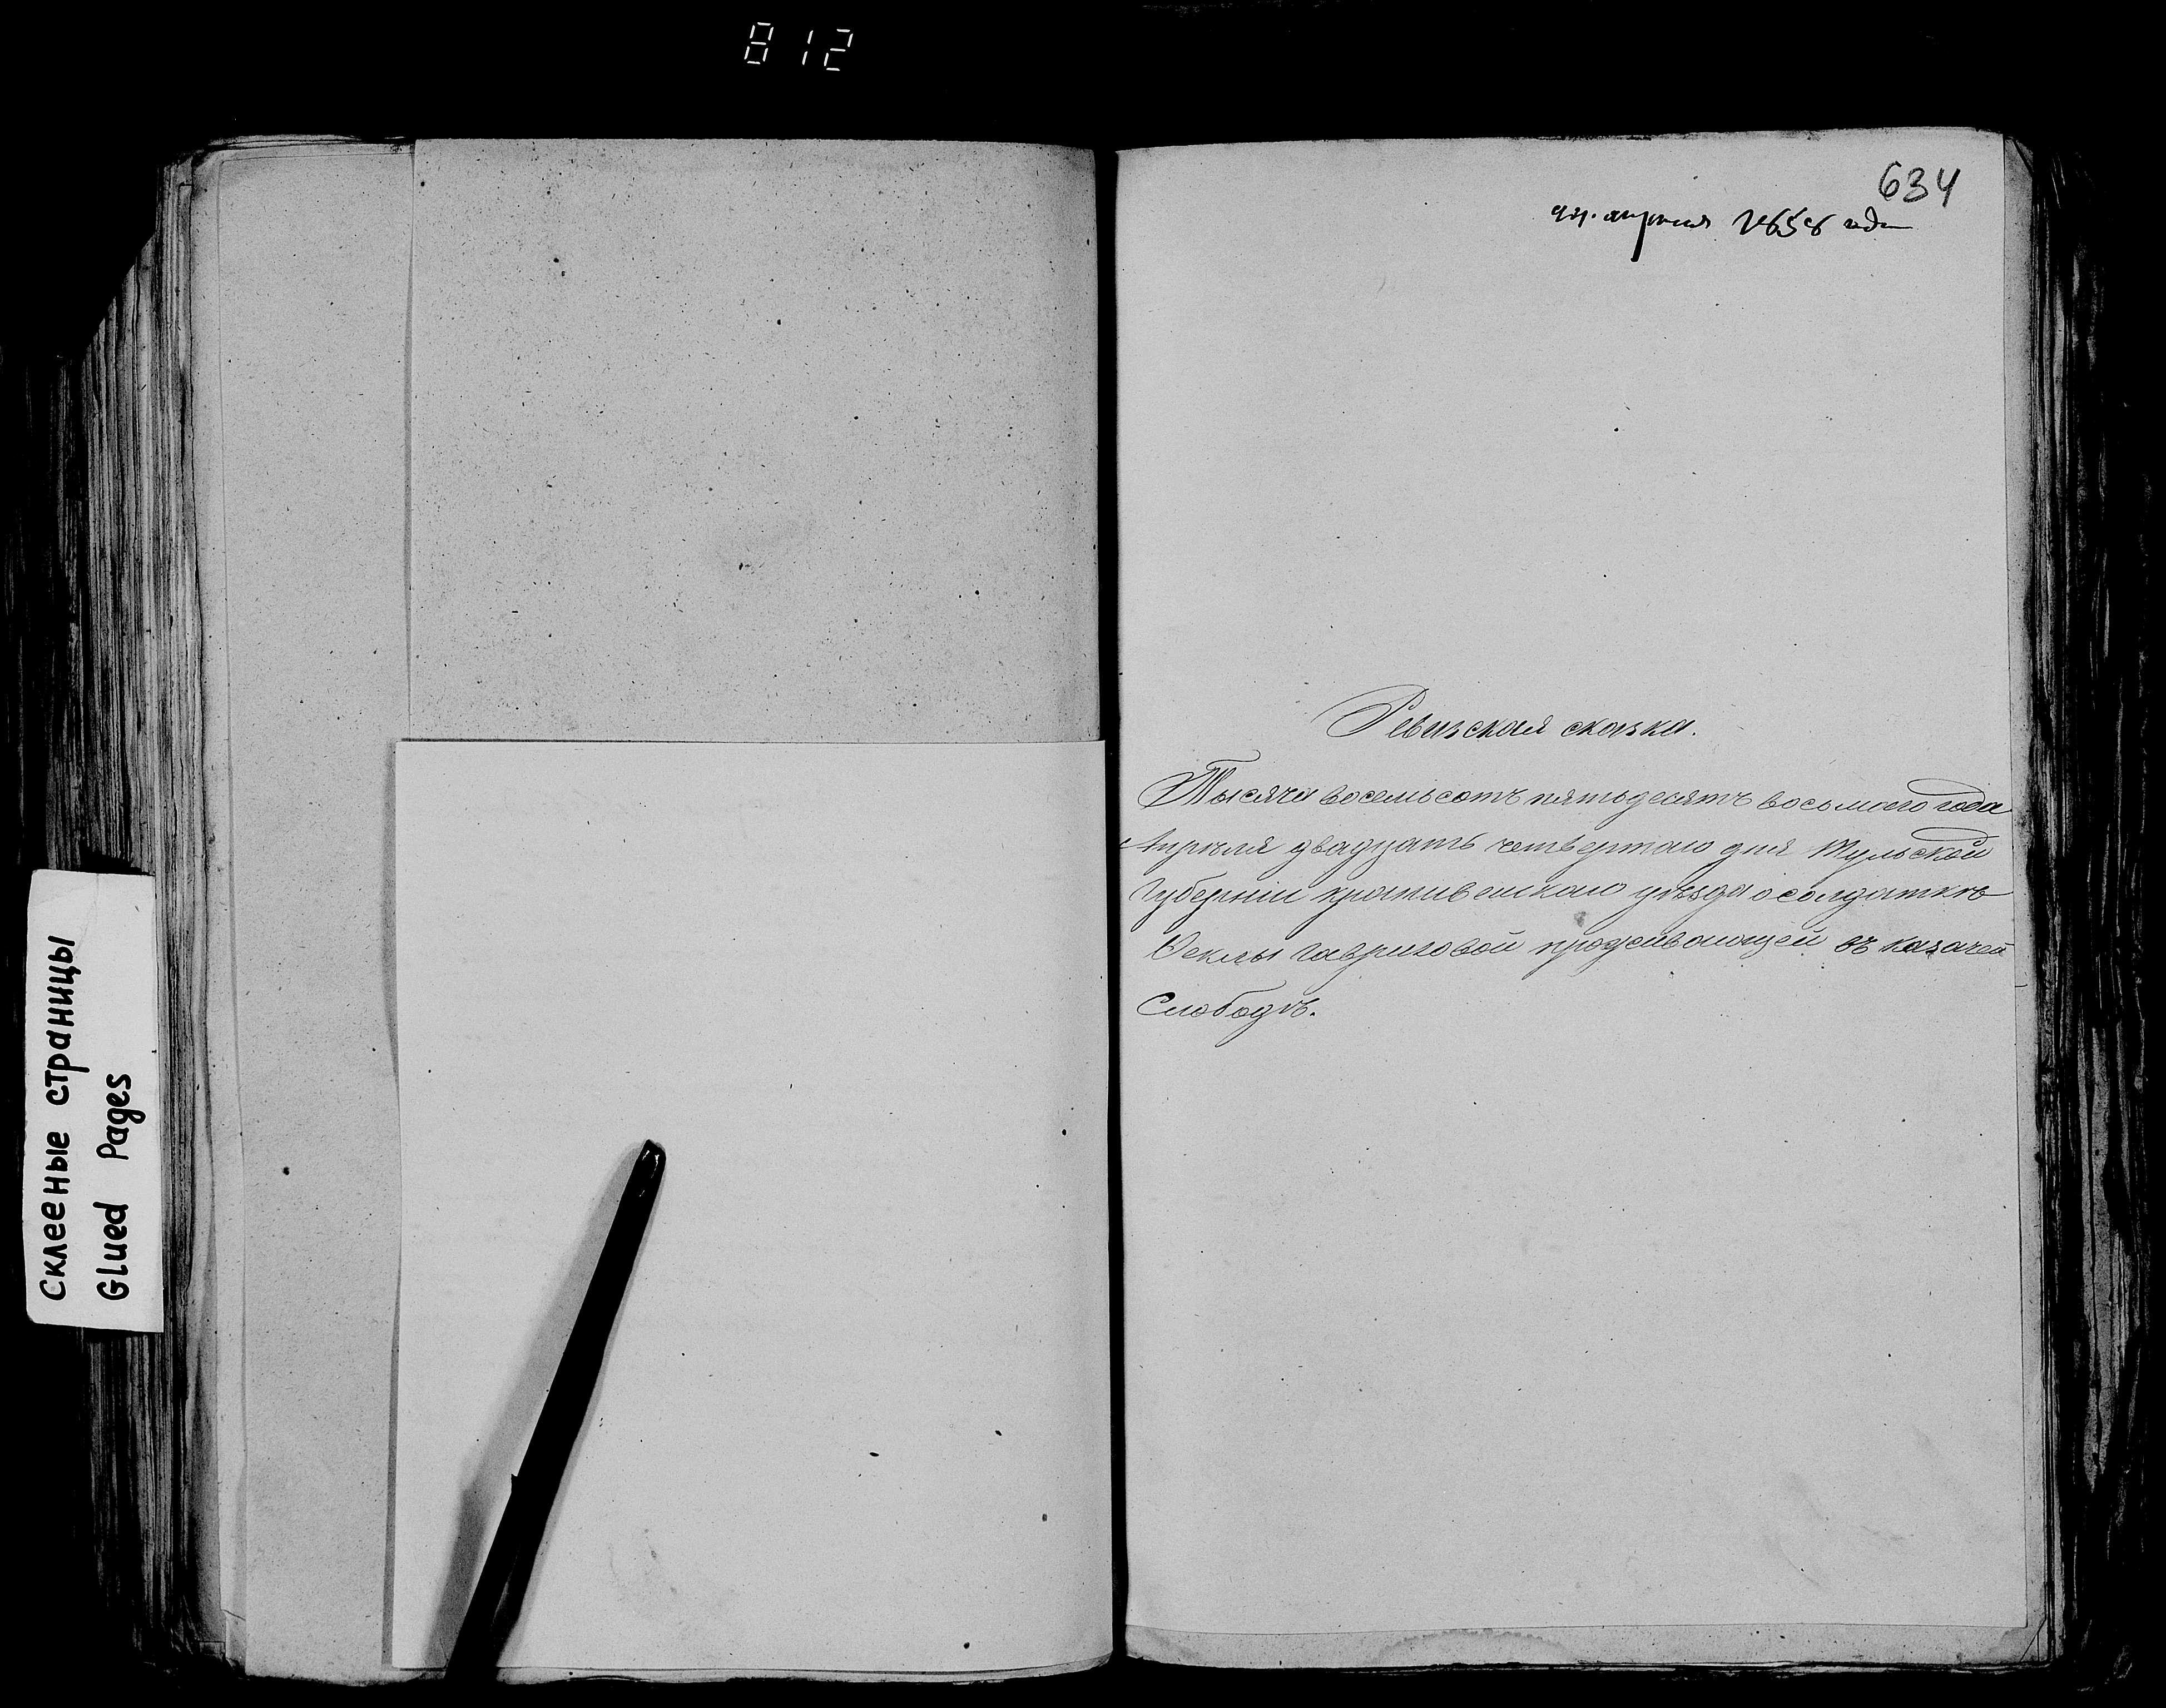 812
Склееные страницы
Glued Pages
634
апреля 1858 года
Ревизская сказка.
Тысяча восемьсотъ пятьдесятъ восьмого года
Апрѣля двадцать четвертаго дня Тульской
Губернiи крапивенскаго уѣзда о солдаткѣ
Феклы Гавриловой проживающей въ казачей
Слободѣ.